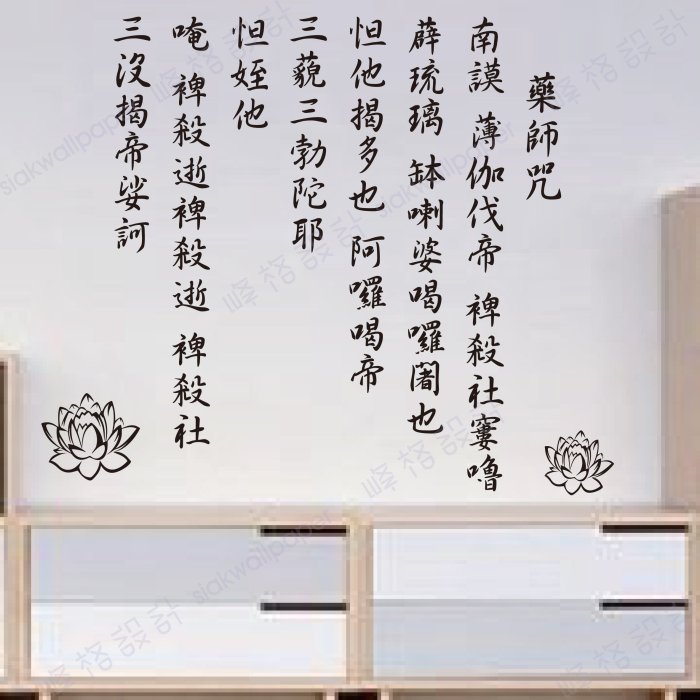 藥師咒
南謨 薄伽伐帝 裨殺社窶嚕
薜琉璃 缽喇婆喝囉闍也
怛他揭多也 阿囉喝帝
三藐三勃陀耶
怛姪他
唵 裨殺逝裨殺逝 裨殺社
三沒揭帝娑訶
峰格設計 siakwallpaper